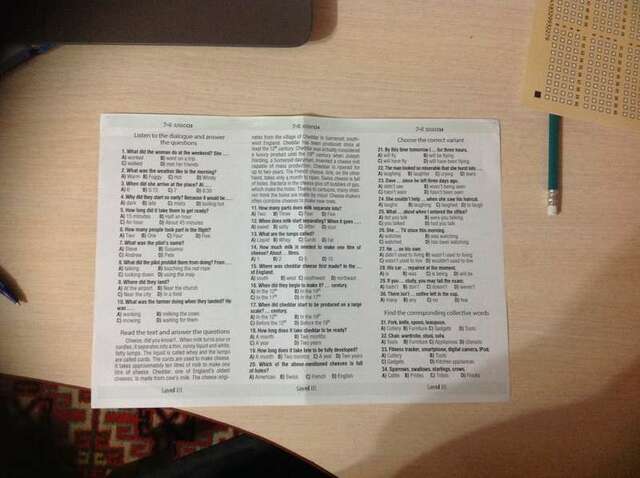 7-8 класси
Listen to the dialogue and answer
the questions
1. What did the women do at the weekend? She ...
A) worked B) went on a trip
C) walked D) met her friends
2. What was the weather like in the morning?
A) Warm B) Foggy C) Hot D) Windy
3. When did she arrive at the place? At ...
A) 6 B) 6:15 C) 7 D) 6:30
4. Why did they start so early? Because it would be ...
A) dark B) late C) misty D) boiling hot
5. How long did it take them to get ready?
A) 15 minutes B) Half an hour
C) An hour D) About 45 minutes
6. How many people took part in the flight?
A) Two B) One C) Four D) Five
7. What was the pilot's name?
A) Steve B) Susanna
C) Andrew D) Pete
8. What did the pilot prohibit them from doing? From ...
A) talking B) touching the red rope
C) looking down D) using the map
9. Where did they land?
A) At the airport B) Near the church
C) Near the city D) In a field
10. What was the farmer doing when they landed? He
was ...
A) working B) milking the cows
C) snowing D) waiting for them
Read the text and answer the questions
Cheese, did you know?.. When milk turns sour or
curdles, it separates into a thin, runny liquid and white,
fatty lumps. The liquid is called whey and the lumps
are called curds. The curds are used to make cheese.
It takes approximately ten litres of milk to make one
kilo of cheese. Cheddar, one of England's oldest
cheeses, is made from cow's milk. The cheese origi-
Level III
7-8 класси
nates from the village of Cheddar in Somerset, south-
west England. Cheddar has been produced since at
least the 12th century. Cheddar was actually considered
a luxury product until the 19th century when Joseph
Harding, a Somerset dairyman, invented a cheese mill
capable of mass production. Cheddar is ripened for
up to two years. The French cheese, brie, on the other
hand, takes only a month to ripen. Swiss cheese is full
of holes. Bacteria in the cheese give off bubbles of gas,
which make the holes. Thanks to cartoons, many chil-
dren think the holes are made by mice! Cheese-makers
often combine cheeses to make new ones.
11. How many parts does milk separate into?
A) Two B) Three C) Four D) Five
12. When does milk start separating? When it goes ...
A) sweet B) salty C) bitter D) sour
13. What are the lumps called?
A) Liquid B) Whey C) Curds D) Fat
14. How much milk is needed to make one kilo of
cheese? About ... litres.
A) 1 B) 2 C) 5 D) 10
15. Where was cheddar cheese first made? In the ...
of England.
A) south B) west C) southwest D) northeast
16. When did they begin to make it? ... century.
A) In the 12th B) In the 19th
C) In the 17th D) In the 11th
17. When did cheddar start to be produced on a large
scale? ... century.
A) In the 12th B) In the 19th
C) Before the 12th D) Before the 19th
18. How long does it take cheddar to be ready?
A) A month B) Two months
C) A year D) Two years
19. How long does it take brie to be fully developed?
A) A month B) Two months C) A year D) Two years
20. Which of the above-mentioned cheeses is full
of holes?
A) American B) Swiss C) French D) English
Level III
7-8 класси
Choose the correct variant
21. By this time tomorrow I ... for three hours.
A) will fly B) will be flying
C) will have fly D) will have been flying
22. The man looked so miserable that she burst into ...
A) laughing B) laughter C) crying D) tears
23. Dave ... since he left three days ago.
A) didn't saw B) wasn't being seen
C) hasn't seen D) hasn't been seen
24. She couldn't help ... when she saw his haircut.
A) laughs B) laughing C) laughed D) to laugh
25. What ... about when I entered the office?
A) did you talk B) were you talking
C) you talked D) had you talk
26. She ... TV since this morning.
A) watches B) was watching
C) watched D) has been watching
27. He ... on his own.
A) didn't used to living B) wasn't used to living
C) wasn't used to live D) wouldn't used to live
28. His car ... repaired at the moment.
A) is B) was C) is being D) will be
29. If you ... study, you may fail the exam.
A) hadn't B) don't C) doesn't D) weren't
30. There isn't ... coffee left in the cup.
A) many B) any C) no D) few
Find the corresponding collective words
31. Fork, knife, spoon, teaspoon.
A) Cutlery B) Furniture C) Gadgets D) Tools
32. Chair, wardrobe, stool, sofa.
A) Tools B) Furniture C) Appliances D) Utensils
33. Fitness tracker, smartphone, digital camera, iPod.
A) Cutlery B) Tools
C) Gadgets D) Kitchen appliances
34. Sparrows, swallows, starlings, crows.
A) Cattle B) Prides C) Tribes D) Flocks
Level III